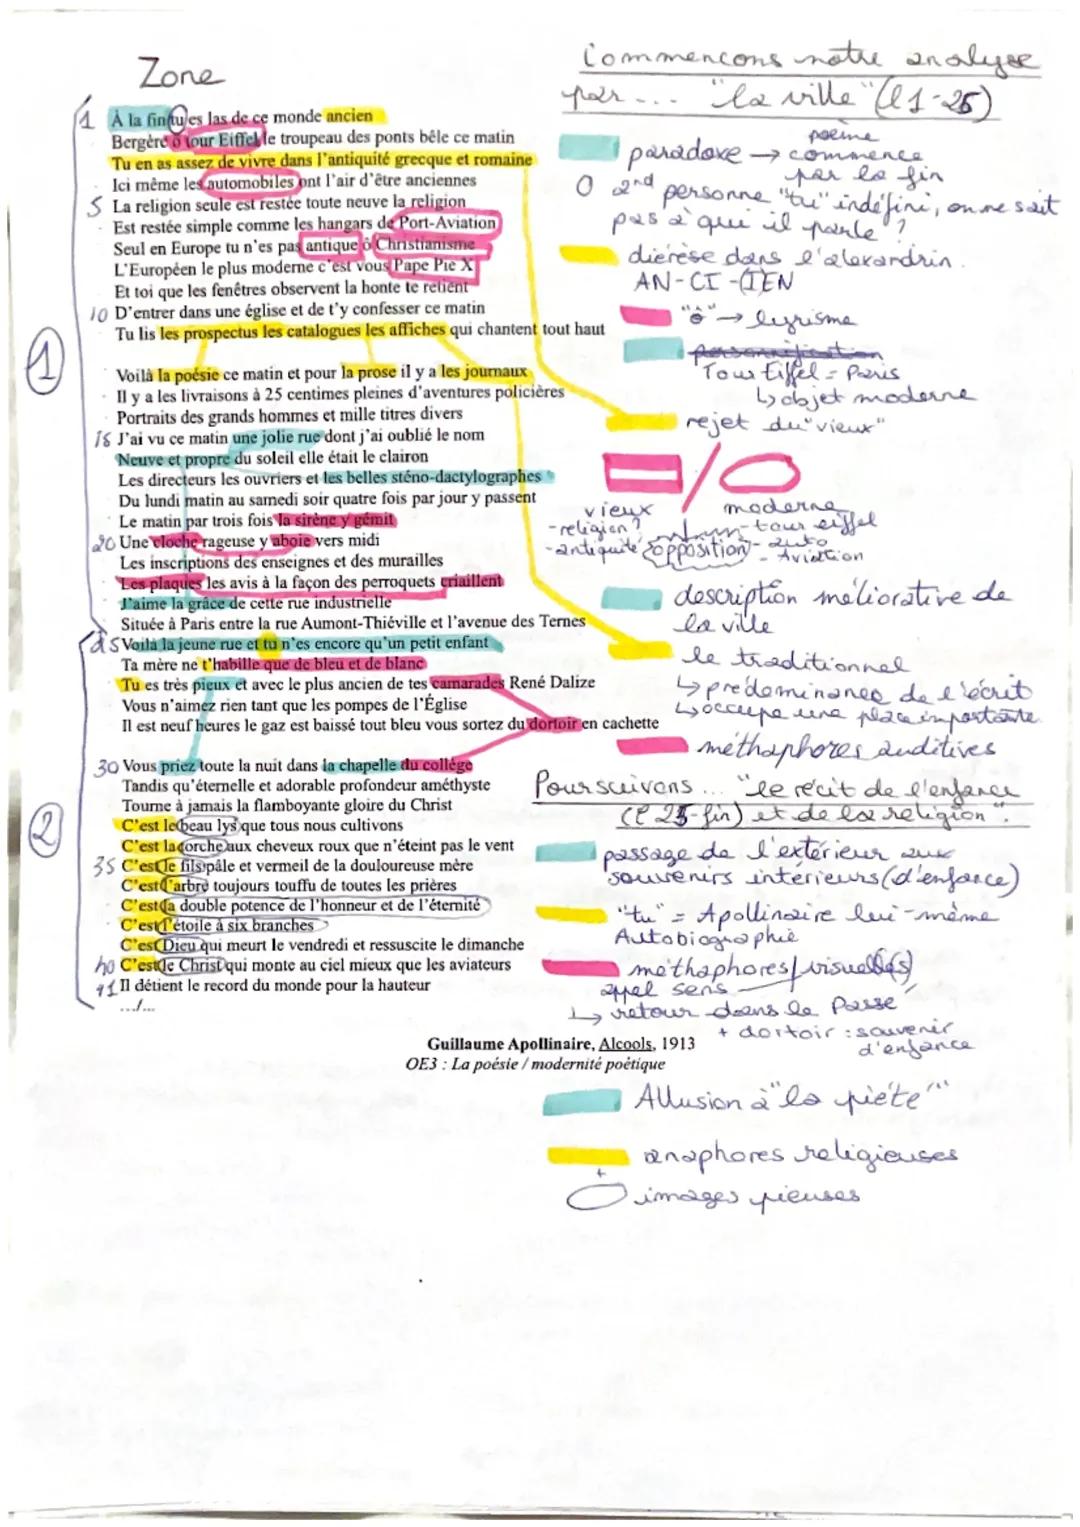 Zone
1 À la fin tu es las de ce monde ancien
Bergère ô tour Eiffel le troupeau des ponts bêle ce matin
Tu en as assez de vivre dans l'antiquité grecque et romaine
Ici même les automobiles ont l'air d'être anciennes
5 La religion seule est restée toute neuve la religion
Est restée simple comme les hangars de Port-Aviation
Seul en Europe tu n'es pas antique ô Christianisme
L'Européen le plus moderne c'est vous Pape Pie X
Et toi que les fenêtres observent la honte te retient
10 D'entrer dans une église et de t'y confesser ce matin
Tu lis les prospectus les catalogues les affiches qui chantent tout haut
1
Voilà la poésie ce matin et pour la prose il y a les journaux
Il y a les livraisons à 25 centimes pleines d'aventures policières
Portraits des grands hommes et mille titres divers
15 J'ai vu ce matin une jolie rue dont j'ai oublié le nom
Neuve et propre du soleil elle était le clairon
Les directeurs les ouvriers et les belles sténo-dactylographes
Du lundi matin au samedi soir quatre fois par jour y passent
Le matin par trois fois la sirène y gémit
20 Une cloche rageuse y aboie vers midi
Les inscriptions des enseignes et des murailles
Les plaques les avis à la façon des perroquets criaillent
J'aime la grâce de cette rue industrielle
Située à Paris entre la rue Aumont-Thiéville et l'avenue des Ternes
25 Voilà la jeune rue et tu n'es encore qu'un petit enfant
Ta mère ne t'habille que de bleu et de blanc
Tu es très pieux et avec le plus ancien de tes camarades René Dalize
Vous n'aimez rien tant que les pompes de l'Église
Il est neuf heures le gaz est baissé tout bleu vous sortez du dortoir en cachette
30 Vous priez toute la nuit dans la chapelle du collège
Tandis qu'éternelle et adorable profondeur améthyste
Tourne à jamais la flamboyante gloire du Christ
2
C'est le beau lys que tous nous cultivons
C'est la torche aux cheveux roux que n'éteint pas le vent
35 C'est le fils pâle et vermeil de la douloureuse mère
C'est l'arbre toujours touffu de toutes les prières
C'est la double potence de l'honneur et de l'éternité
C'est l'étoile à six branches
C'est Dieu qui meurt le vendredi et ressuscite le dimanche
40 C'est le Christ qui monte au ciel mieux que les aviateurs
41 Il détient le record du monde pour la hauteur
.../...
Guillaume Apollinaire, Alcools, 1913
OE3 : La poésie / modernité poétique
Commencons notre analyse
par... "la ville" (l 1-25)
paradoxe → poème
commence
par la fin
2nd personne "tu" indéfini, on ne sait
pas à qui il parle ?
diérèse dans l'alexandrin.
AN-CI-(I)EN
"ô" → lyrisme
personnification
Tour Eiffel = Paris
↳ objet moderne
rejet du "vieux"
/
vieux
- religion ?
- antiquité
opposition
moderne
- tour eiffel
- auto
- Aviation
description méliorative de
la ville
le traditionnel
↳ prédominance de l'écrit
↳ occupe une place importante
méthaphores auditives
Poursuivons... "le récit de l'enfance
(l 25-fin) et de la religion".
passage de l'extérieur aux
souvenirs intérieurs (d'enfance)
"tu" = Apollinaire lui-même
Autobiographie
méthaphores visuelle(s)
appel sens
↳ retour dans le Passé
+ dortoir : souvenir
d'enfance
Allusion à "la piéte"
anaphores religieuses
+
images pieuses